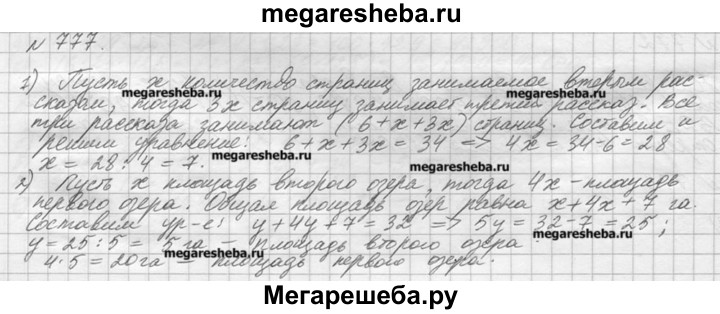 megaresheba.ru
N 777.
1) Пусть x количество страниц занимаемое вторым рас-
сказом, тогда 3x страниц занимает третий рассказ. Все
megaresheba.ru megaresheba.ru
три рассказа занимают (6+x+3x) страниц. Составим и
решим уравнение: 6+x+3x=34 => 4x=34-6=28
x=28:4=7.
megaresheba.ru megaresheba.ru
2) Пусть x площадь второго озера, тогда 4x - площадь
первого озера. Общая площадь озер равна x+4x+7 га.
Составим ур-е: y+4y+7=32 => 5y=32-7=25;
y=25:5=5га - площадь второго озера.
megaresheba.ru megaresheba.ru
4·5=20га - площадь первого озера.
Мегарешеба.ру